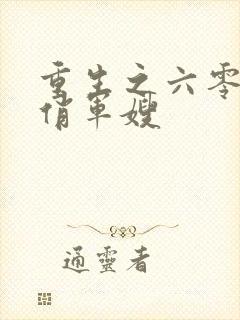 重生之六零
俏军嫂
通靈者